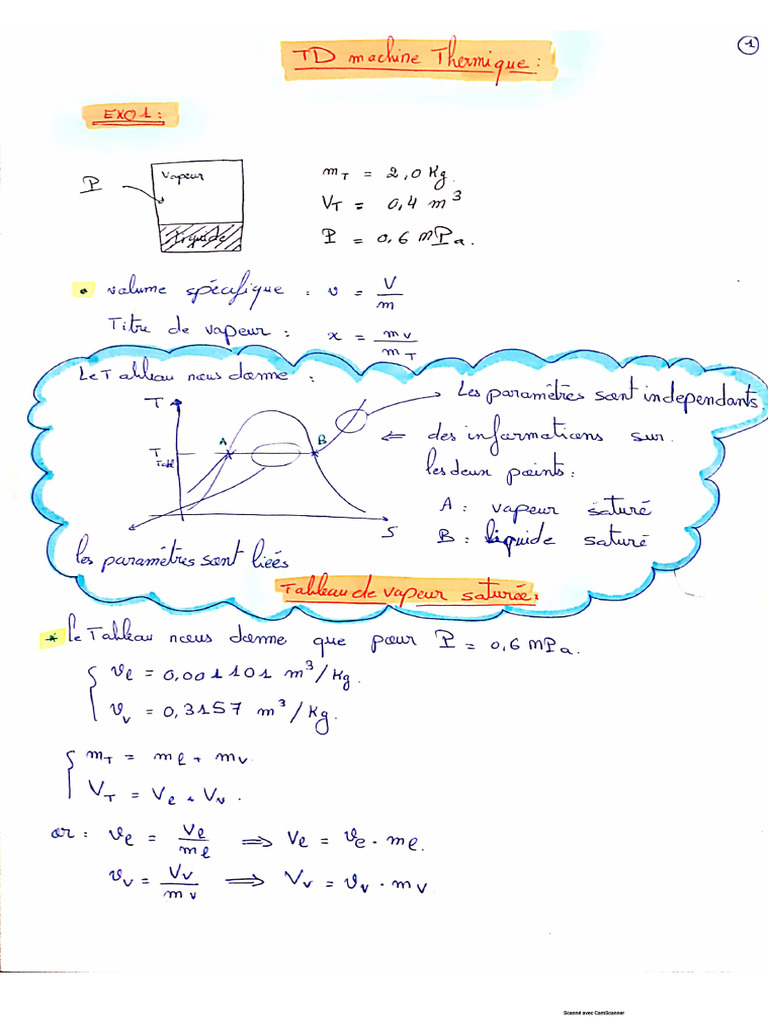 1
TD machine Thermique :
EXO1 :
P
Vapeur
liquide
m_T = 2,0 Kg.
V_T = 0,4 m³
P = 0,6 MPa.
• volume spécifique : v = V/m
Titre de vapeur : x = m_v/m_T
Le Tableau nous donne :
T
T_Tabl
A
B
S
les paramètres sont liées
Les paramètres sont independants
⇐ des informations sur
les deux points :
A : vapeur saturé
B : liquide saturé
Tableau de vapeur saturée :
* le Tableau nous donne que pour P = 0,6 MPa.
v_l = 0,001101 m³/Kg.
v_v = 0,3157 m³/Kg.
m_T = m_l + m_v
V_T = V_l + V_v.
or : v_l = V_l/m_l ⟹ V_l = v_l · m_l.
v_v = V_v/m_v ⟹ V_v = v_v · m_v
Scanné avec CamScanner